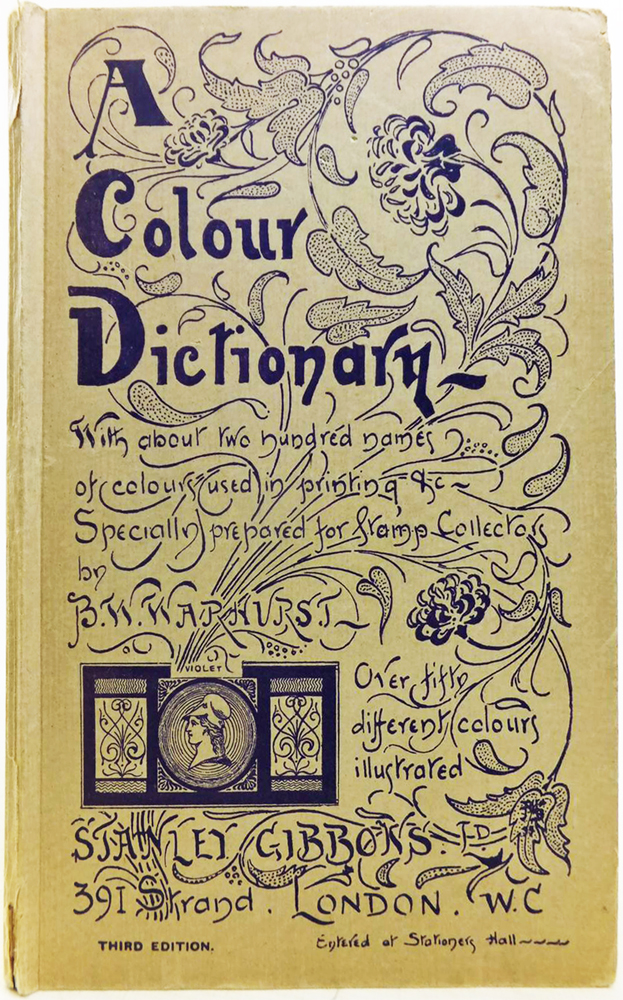 A
Colour
Dictionary
With about two hundred names
of colours used in printing &c
Specially prepared for Stamp Collectors
by
B. W. WARHURST
VIOLET
Over fifty
different colours
illustrated
STANLEY GIBBONS. LD.
391 Strand. LONDON. W.C
THIRD EDITION.
Entered at Stationers Hall